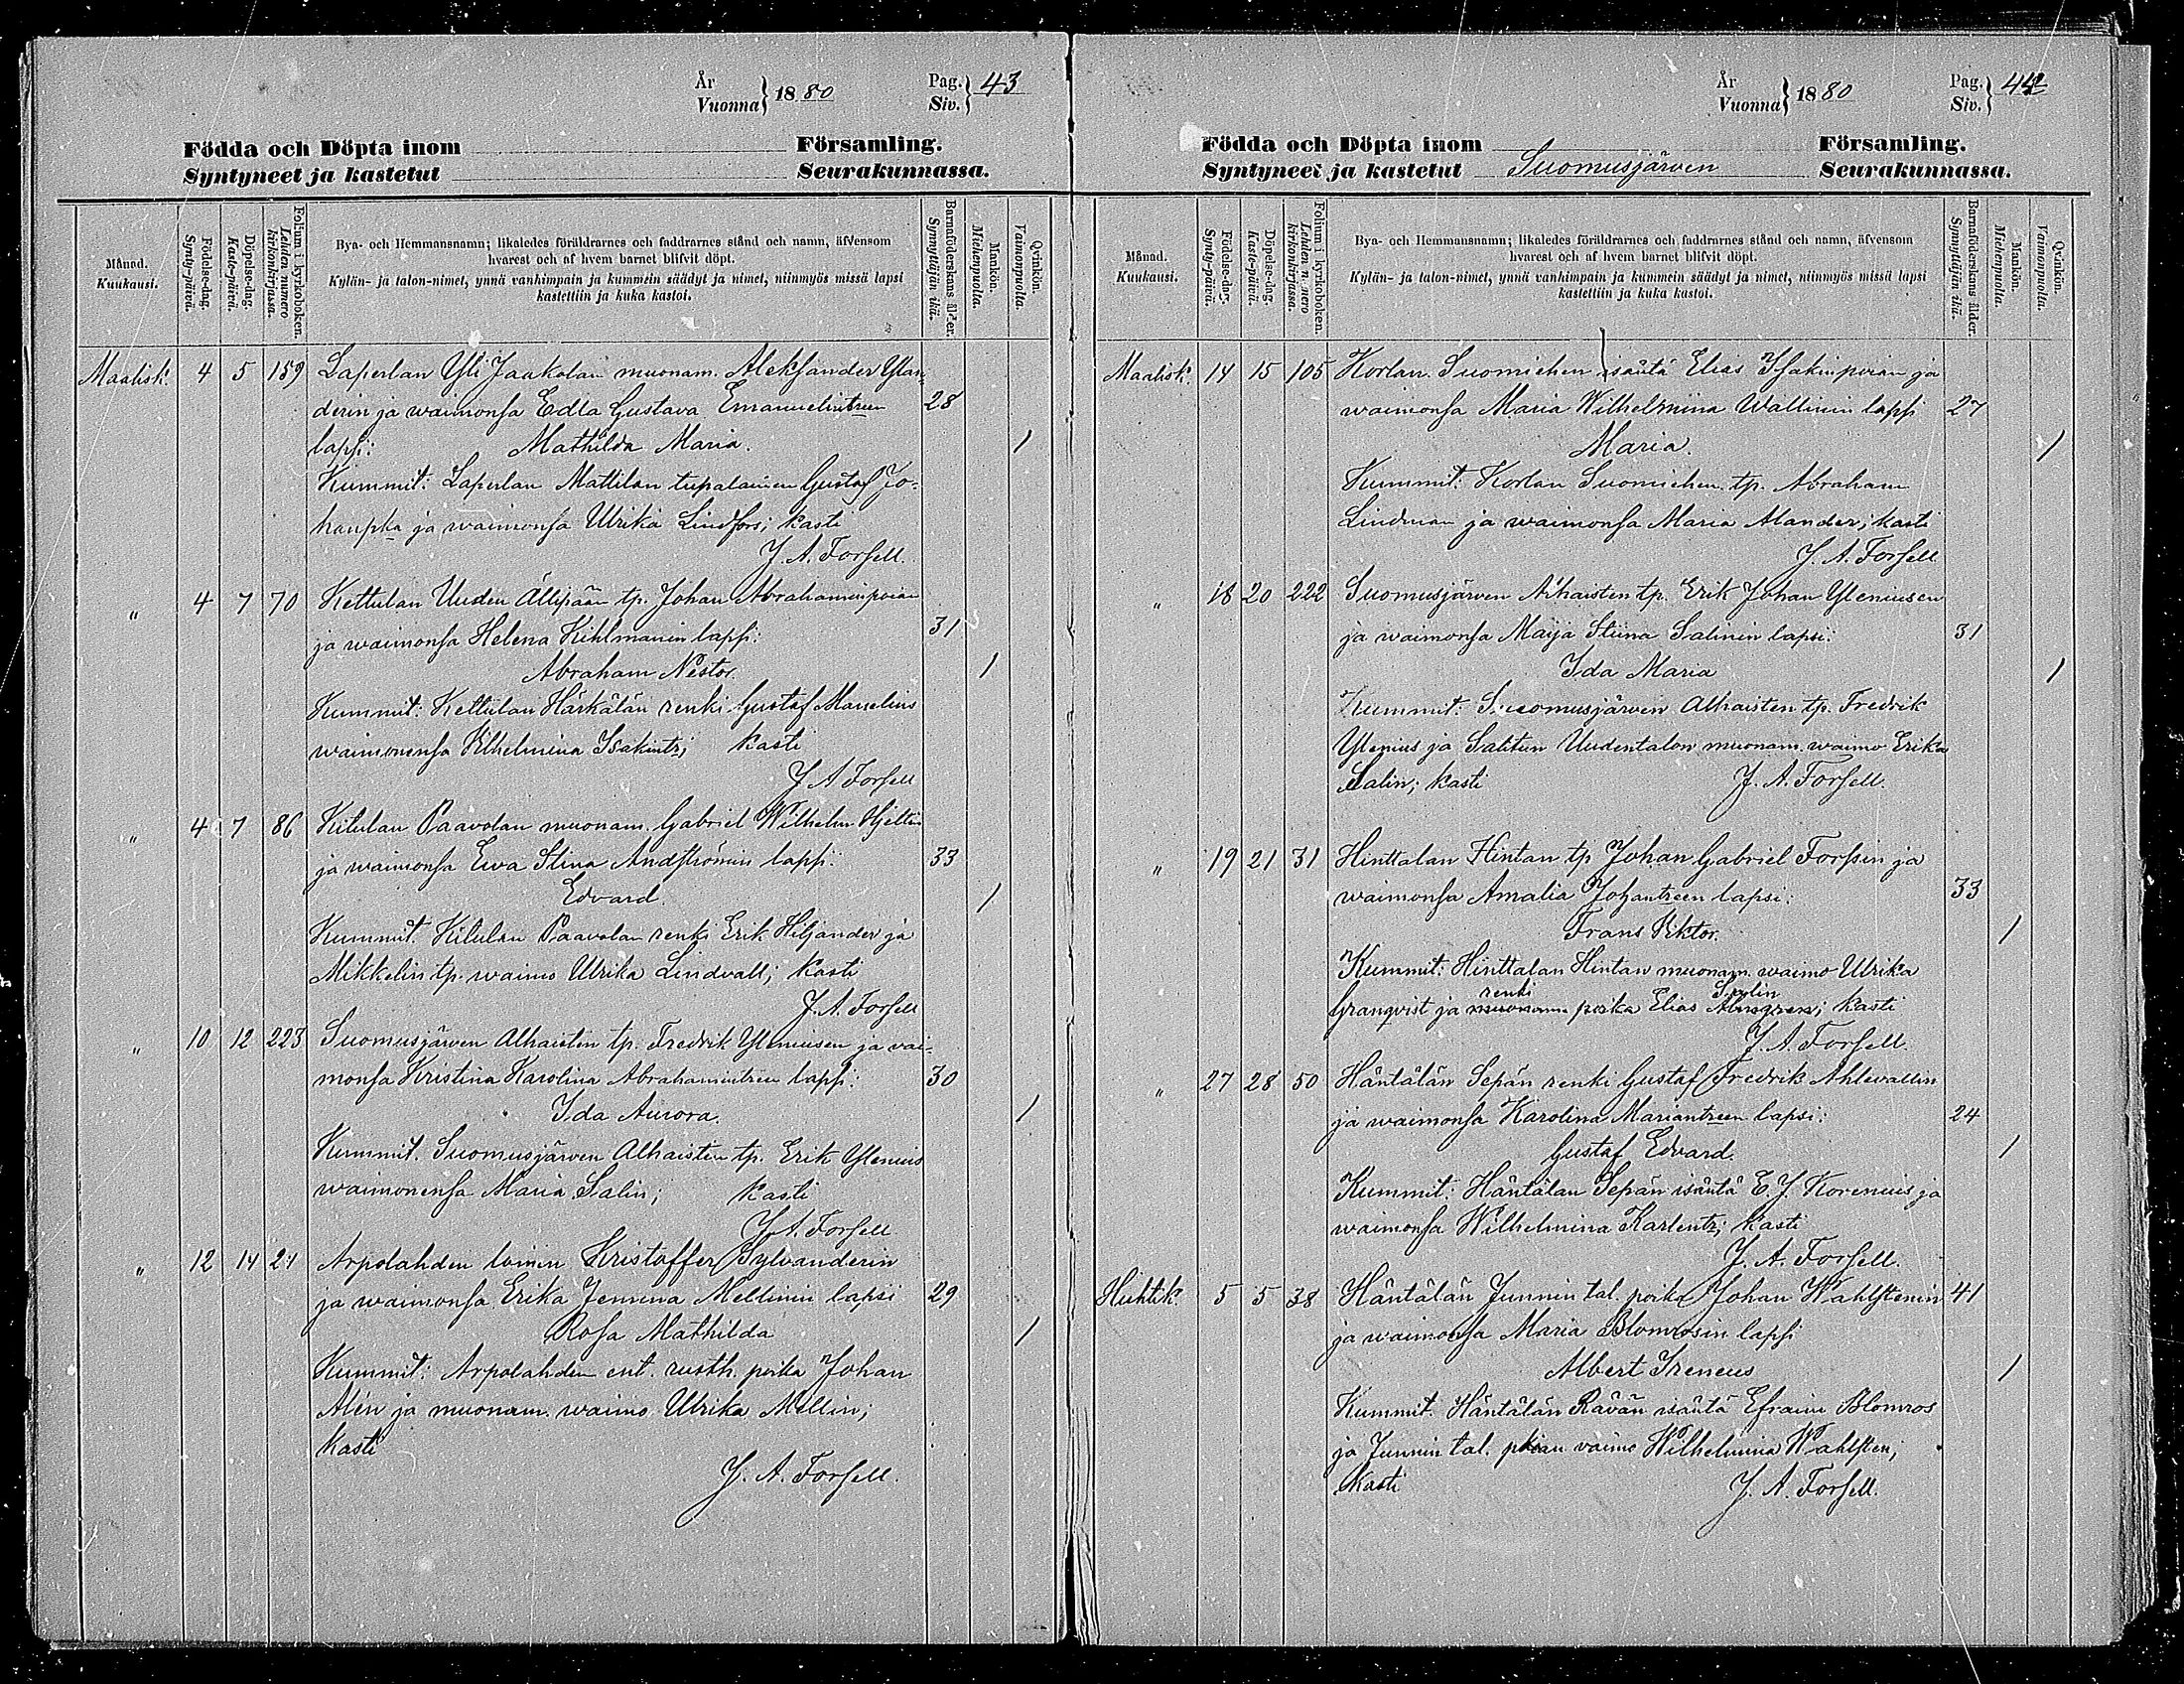 År
Vuonna} 1880
Pag.
Siv.} 43
Födda och Döpta inom Församling.
Syntyneet ja kastetut Seurakunnassa.
Månad.
Kuukausi.
Födelse-dag.
Synty-päivä.
Döpelse-dag.
Kaste-päivä.
Folium i kyrkoboken.
Lehden numero
kirkonkirjassa.
Bya- och Hemmansnamn; likaledes föräldrarnes och faddrarnes stånd och namn, äfvensom
hvarest och af hvem barnet blifvit döpt.
Kylän- ja talon-nimet, ynnä vanhimpain ja kummein säädyt ja nimet, niinmyös missä lapsi
kastettiin ja kuka kastoi.
Barnaföderskans ålder.
Synnyttäjän ikä.
Mankön.
Miehenpuolta.
Qvinkön.
Vaimonpuolta.
Maalisk. 4 5 159 Laperlan Yli Jaakolan muonam. Aleksander Ylan-
derin ja waimonsa Edla Gustava Emanuelintreen 28
lapsi: Mathilda Maria. 1
Kummit: Laperlan Mattilan tupalainen Gustaf Jo-
hanpka ja waimonsa Ulrika Lindfors; kasti
J. A. Forsell.
" 4 7 70 Kettulan Uuden Ällipään tp. Johan Abrahaminpoian
ja waimonsa Helena Kihlmanin lapsi: 31
Abraham Nestor. 1
Kummit: Kettulan Härkälän renki Gustaf Manelius
waimonensa Wilhelmina Isakintr; kasti
J. A. Forsell
" 4 7 86 Kitulan Paavolan muonam. Gabriel Wilhelm Hjeltin
ja waimonsa Ewa Stina Andströmin lapsi: 33
Edvard. 1
Kummit. Kitulan Paavolan renki Erik Hiljander ja
Mikkelin tp. waimo Ulrika Lindvall; kasti
J. A. Forsell
" 10 12 223 Suomusjärven Alhaisten tp. Fredrik Yleniusen ja vai-
monsa Kristina Karolina Abrahamintreen lapsi: 30
Ida Aurora. 1
Kummit. Suomusjärven Alhaisten tp. Erik Ylenius
waimonensa Maria Salin; kasti
J. A. Forsell
" 12 14 21 Arpolahden lainin Kristoffer Sylvanderin
ja waimonsa Erika Jemina Mellinin lapsi 29
Rosa Mathilda 1
Kummit: Arpolahden ent. rusth. poika Johan
Alén ja muonam. waimo Ulrika Mellin;
kasti
J. A. Forsell.
År
Vuonna} 1880
Pag.
Siv.} 44
Födda och Döpta inom Församling.
Syntyneet ja kastetut Suomusjärven Seurakunnassa.
Månad.
Kuukausi.
Födelse-dag.
Synty-päivä.
Döpelse-dag.
Kaste-päivä.
Folium i kyrkoboken.
Lehden numero
kirkonkirjassa.
Bya- och Hemmansnamn; likaledes föräldrarnes och faddrarnes stånd och namn, äfvensom
hvarest och af hvem barnet blifvit döpt.
Kylän- ja talon-nimet, ynnä vanhimpain ja kummein säädyt ja nimet, niinmyös missä lapsi
kastettiin ja kuka kastoi.
Barnaföderskans ålder.
Synnyttäjän ikä.
Mankön.
Miehenpuolta.
Qvinkön.
Vaimonpuolta.
Maalisk. 14 15 105 Korlan Suomiehen isäntä Elias Isakinpoian ja
waimonsa Maria Wilhelmiina Wallinin lapsi 27
Maria. 1
Kummit: Korlan Suomiehen tp. Abraham
Lindman ja waimonsa Maria Alander; kasti
J. A. Forsell
" 18 20 222 Suomusjärven Alhaisten tp. Erik Johan Yleniusen
ja waimonsa Maija Stiina Salinin lapsi: 31
Ida Maria 1
Kummit: Suomusjärven Alhaisten tp. Fredrik
Ylenius ja Salitun Uudentalon muonam. waimo Erika
Salin; kasti J. A. Forsell.
" 19 21 31 Hinttalan Hintan tp Johan Gabriel Forssin ja
waimonsa Amalia Johantreen lapsi: 33
Frans Viktor. 1
Kummit: Hinttalan Hintan muonam. waimo Ulrika
renki Salin
Granqvist ja muonam. poika Elias Almgren; kasti
J. A. Forsell.
" 27 28 50 Häntälän Sepän renki Gustaf Fredrik Ahlevallin
ja waimonsa Karolina Mariantreen lapsi: 24
Gustaf Edvard. 1
Kummit: Häntälän Sepän isäntä E. J. Korenius ja
waimonsa Wilhelmina Karlentr; kasti
J. A. Forsell.
Huhtik. 5 5 38 Häntälän Junnin tal. poika Johan Wahlstenin 41
ja waimonsa Maria Blomrosin lapsi
Albert Ireneus 1
Kummit. Häntälän Rävän isäntä Efraim Blomros
ja Junnin tal. poian vaimo Wilhelmina Wahlsten,
kasti J. A. Forsell.